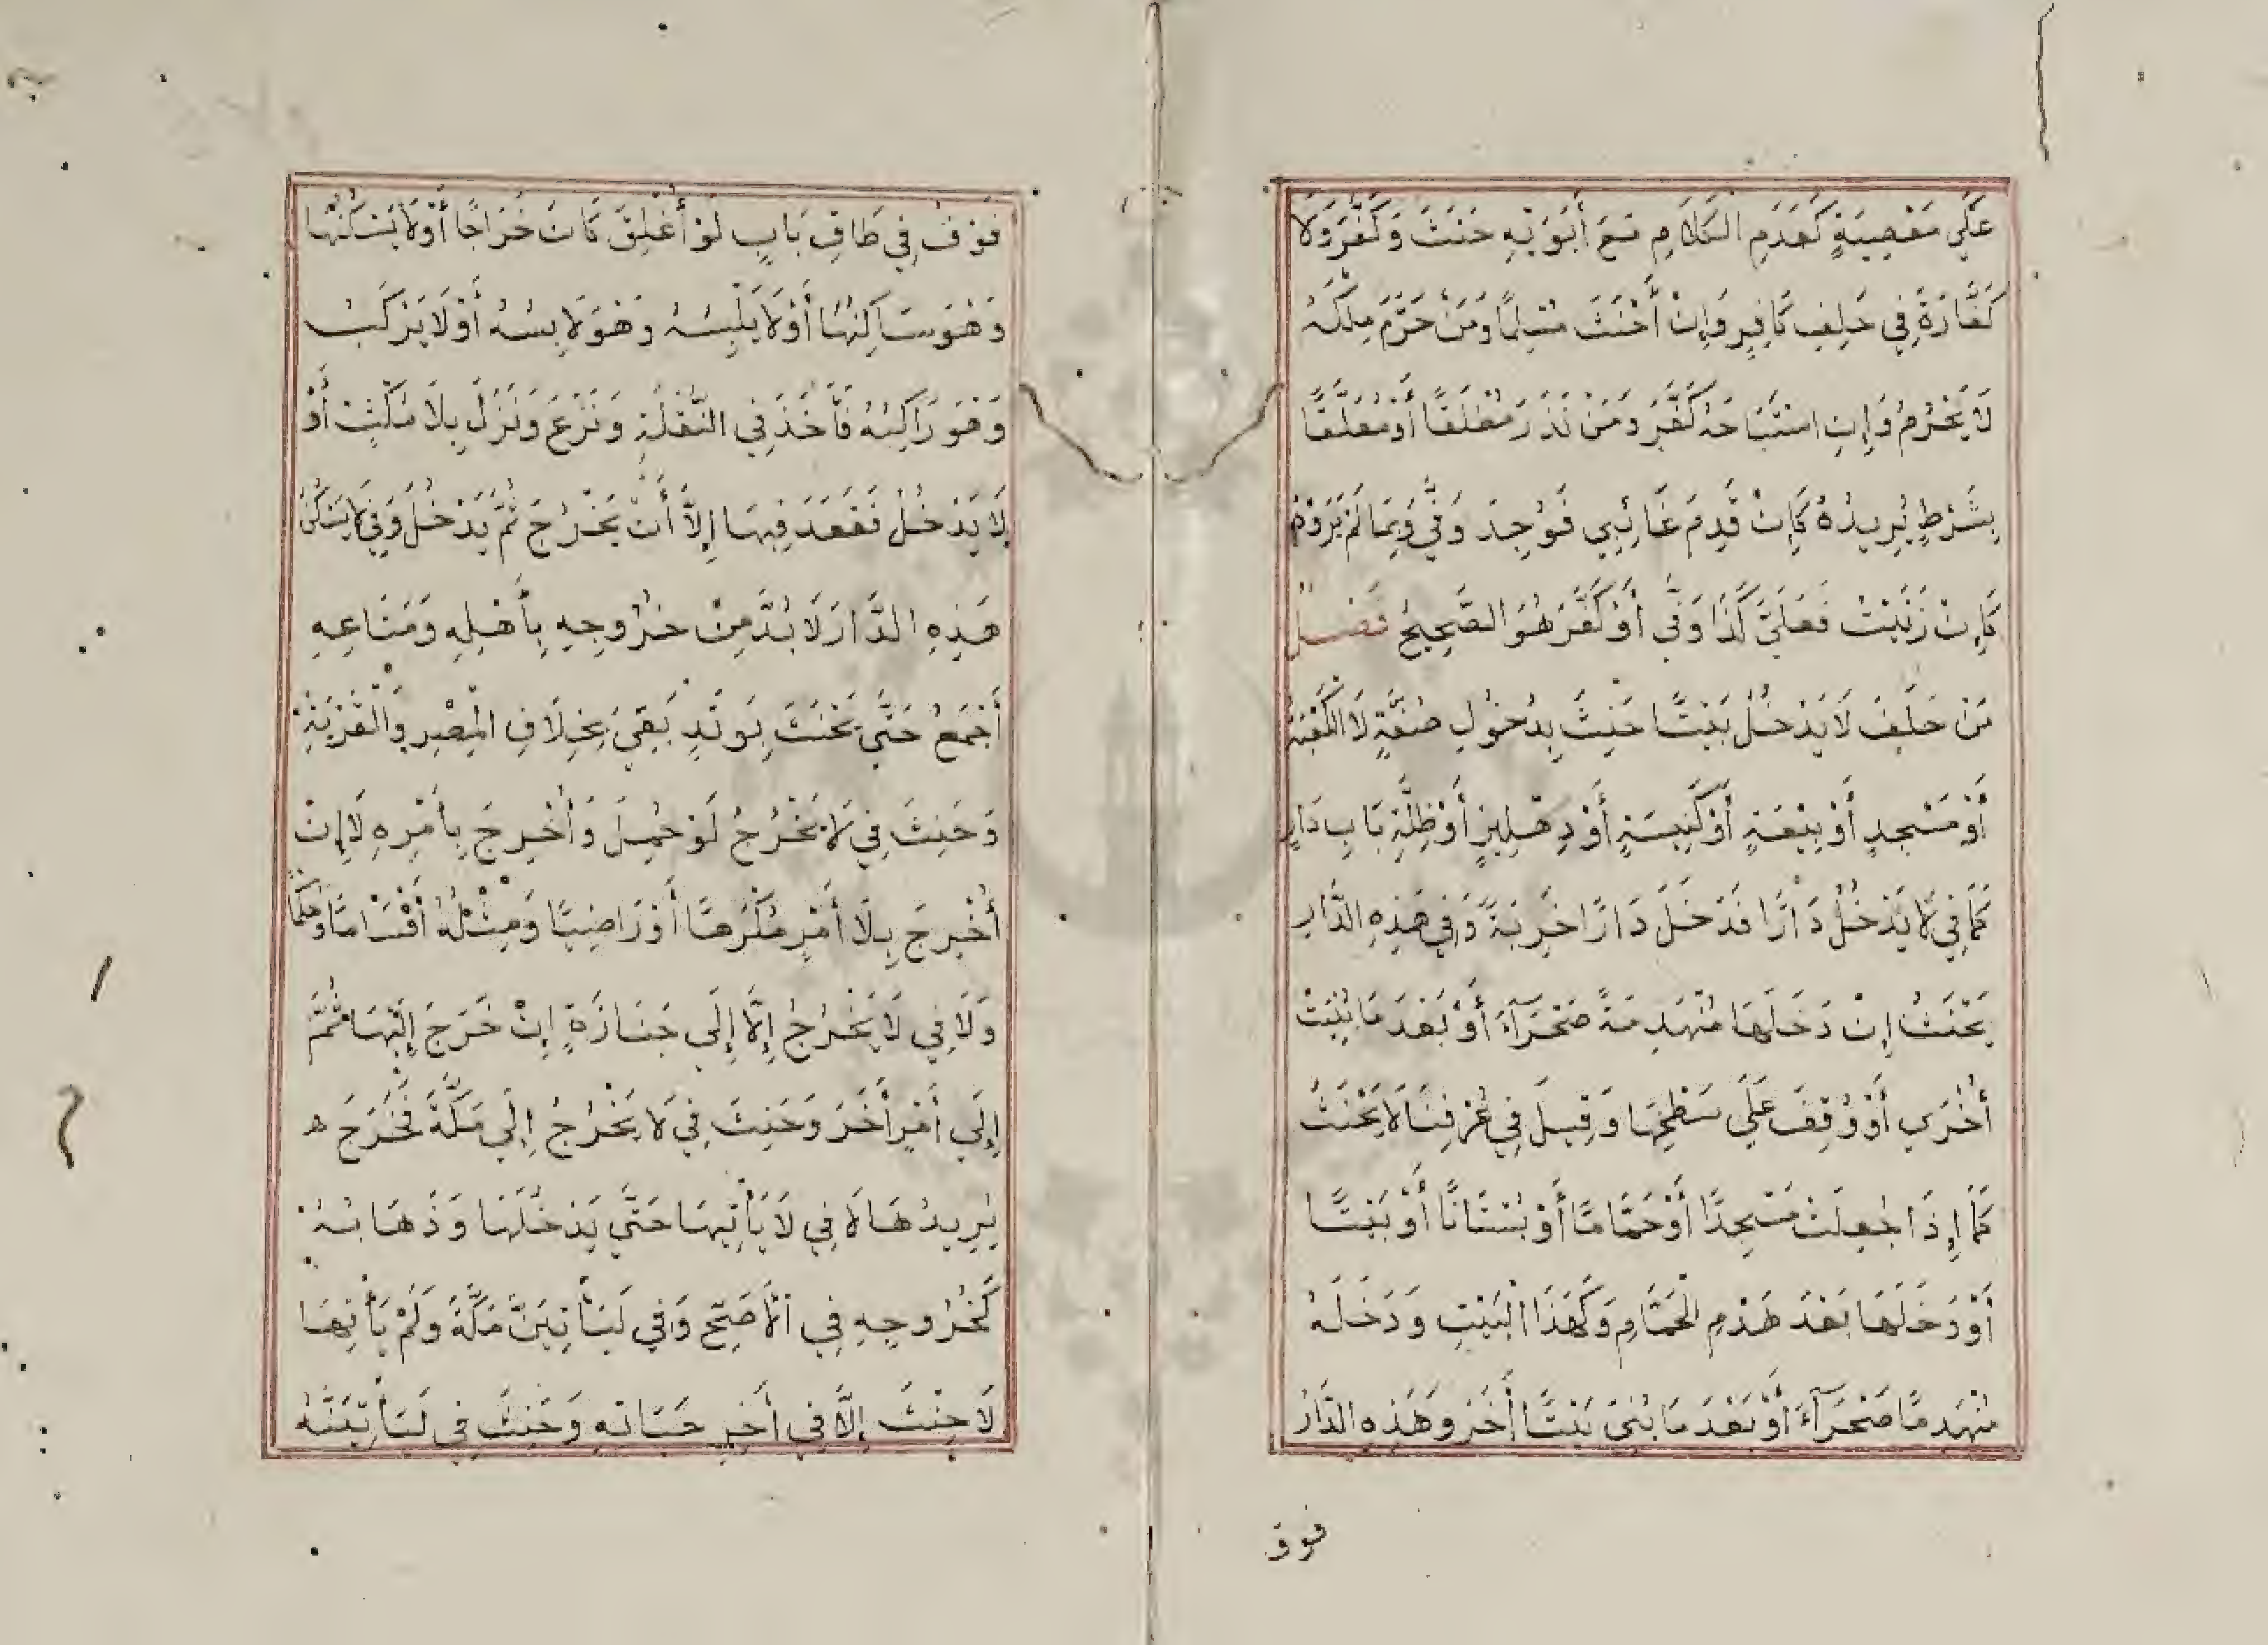 عَلَي مَعْصِيَةٍ كَعَدَمِ الْكَلَامِ مَعَ أَبَوَيْهِ حَنَثَ وَكَفَّرَ وَلَا
كَفَّارَةَ فِي حَلِفِ كَافِرٍ وَإِنْ أَحْنَثَ مُسْلِمًا وَمَنْ حَرَّمَ مِلْكَهُ
لَا يَحْرُمُ وَإِنِ اسْتَبَاحَهُ كَفَّرَ وَمَنْ نَذَرَ مُطْلَقًا أَوْ مُعَلَّقًا
بِشَرْطٍ يُرِيدُهُ كَإِنْ قَدِمَ غَائِبِي فَوُجِدَ وَفَّي وَبِمَا لَمْ يَرُدْهُ
كَإِنْ زَنَيْتُ فَعَلَيَّ كَذَا وَفَّي أَوْ كَفَّرَ هُوَ الصَّحِيحُ فَصْلٌ
مَنْ حَلَفَ لَا يَدْخُلُ بَيْتًا حَنِثَ بِدُخُولِ صُفَّةٍ لَا الْكَعْبَةِ
أَوْ مَسْجِدٍ أَوْ بِيْعَةٍ أَوْ كَنِيسَةٍ أَوْ دِهْلِيزٍ أَوْ ظُلَّةِ بَابِ دَارٍ
كَمَا فِي لَا يَدْخُلُ دَارًا فَدَخَلَ دَارًا خَرِبَةً وَفِي هَذِهِ الدَّارِ
يَحْنَثُ إِنْ دَخَلَهَا مُنْهَدِمَةً صَحْرَآءَ أَوْ بَعْدَ مَا بُنِيَتْ
أُخْرَي أَوْ وُقِفَ عَلَي سَطْحِهَا وَقِيلَ فِي عُرْفِنَا لَا يَحْنَثُ
كَمَا إِذَا جُعِلَتْ مَسْجِدًا أَوْ حَمَّامًا أَوْ بُسْتَانًا أَوْ بَيْتًا
أَوْ دَخَلَهَا بَعْدَ هَدْمِ الْحَمَّامِ وَكَهَذَا الْبَيْتِ وَدَخَلَهُ
مُنْهَدِمًا صَحْرَآءَ أَوْ بَعْدَ مَا بُنِيَ بَيْتًا أَخَرَ وَهَذِهِ الدَّارُ
فوق
فَوَقَفَ فِي طَاقِ بَابٍ لَوْ أُغْلِقَ كَانَ خَرَاجًا أَوْ لَا يَسْكُنُهَا
وَهْوَ سَاكِنُهَا أَوْ لَا يَلْبِسُهُ وَهْوَ لَابِسُهُ أَوْ لَا يَرْكَبُ
وَهْوَ رَاكِبُهُ فَأَخَذَ فِي النُّقْلَةِ وَنَزَعَ وَنَزَلَ بِلَا مُكْثٍ أَوْ
لَا يَدْخُلُ فَقَعَدَ فِيهَا إِلَّا أَنْ يَخْرُجَ ثُمَّ يَدْخُلَ وَفِي لَا يَسْكُنُ
هَذِهِ الدَّارَ لَا بُدَّ مِنْ خُرُوجِهِ بِأَهْلِهِ وَمَتَاعِهِ
أَجْمَعَ حَتَّي يَحْنَثَ بِوَتَدٍ بَقِيَ بِخِلَافِ الْمِصْرِ وَالْقَرْيَةِ
وَحَنِثَ فِي لَا يَخْرُجُ لَوْ حُمِلَ وَأُخْرِجَ بِأَمْرِهِ لَا إِنْ
أُخْرِجَ بِلَا أَمْرٍ مُكْرَهًا أَوْ رَاضِيًا وَمِثْلُهُ أَقْسَامًا وَحُكْمًا
وَلَا فِي لَا يَخْرُجُ إِلَّا إِلَي جَنَازَةٍ إِنْ خَرَجَ إِلَيْهَا ثُمَّ
إِلَي أَمْرٍ أَخَرَ وَحَنِثَ فِي لَا يَخْرُجُ إِلَي مَكَّةَ فَخَرَجَ ه
يُرِيدُهَا لَا فِي لَا يَأْتِيهَا حَتَّي يَدْخُلَهَا وَذَهَابُهُ
كَخُرُوجِهِ فِي الْأَصَحِّ وَفِي لَيَأْتِيَنَّ مَكَّةَ وَلَمْ يَأْتِهَا
لَا حِنْثَ إِلَّا فِي أَخِرِ حَيَاتِهِ وَحَنِثَ فِي لَيَأْتِيَنَّهُ